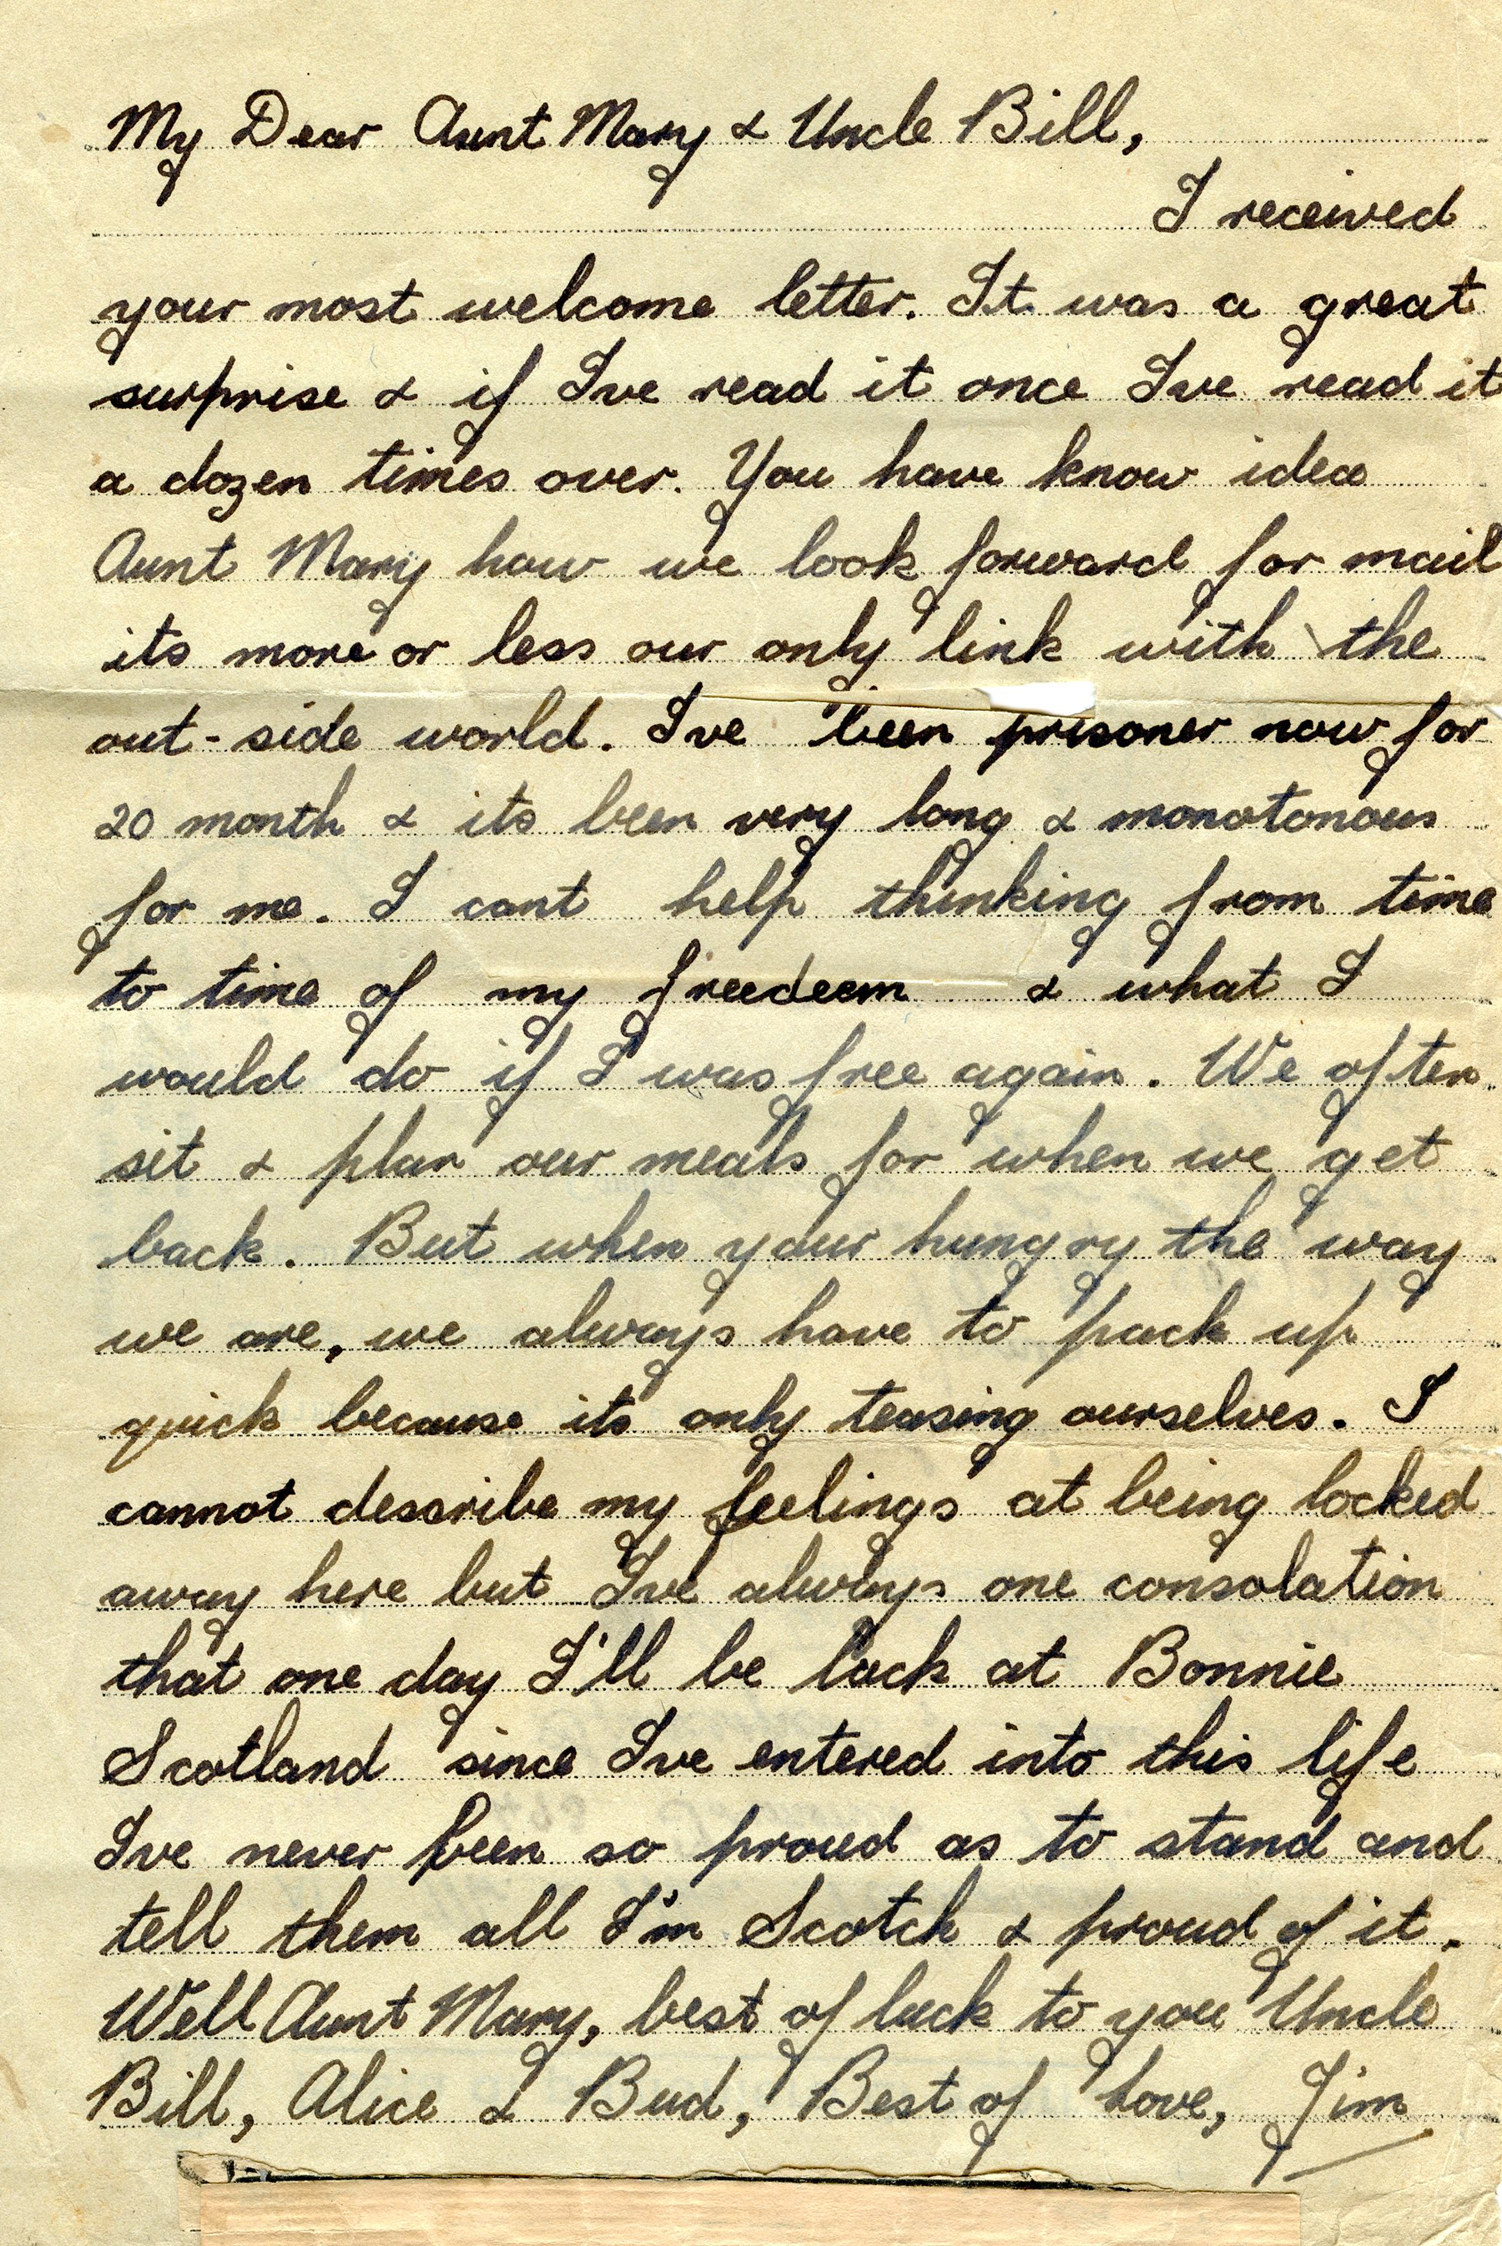 My Dear Aunt Mary & Uncle Bill,
I received
your most welcome letter. It was a great
surprise & if Ive read it once Ive read it
a dozen times over. You have know idea
Aunt Mary how we look forward for mail
its more or less our only link with the
out-side world. Ive been prisoner now for
20 month & its been very long & monotonous
for me. I cant help thinking from time
to time of my freedeem & what I
would do if I was free again. We often
sit & plan our meals for when we get
back. But when your hungry the way
we are, we always have to pack up
quick because its only teasing ourselves. I
cannot describe my feelings at being locked
away here but Ive always one consolation
that one day I'll be back at Bonnie
Scotland since Ive entered into this life
Ive never been so proud as to stand and
tell them all I'm Scotch & proud of it.
Well Aunt Mary, best of luck to you Uncle
Bill, Alice & Bud, Best of Love, Jim